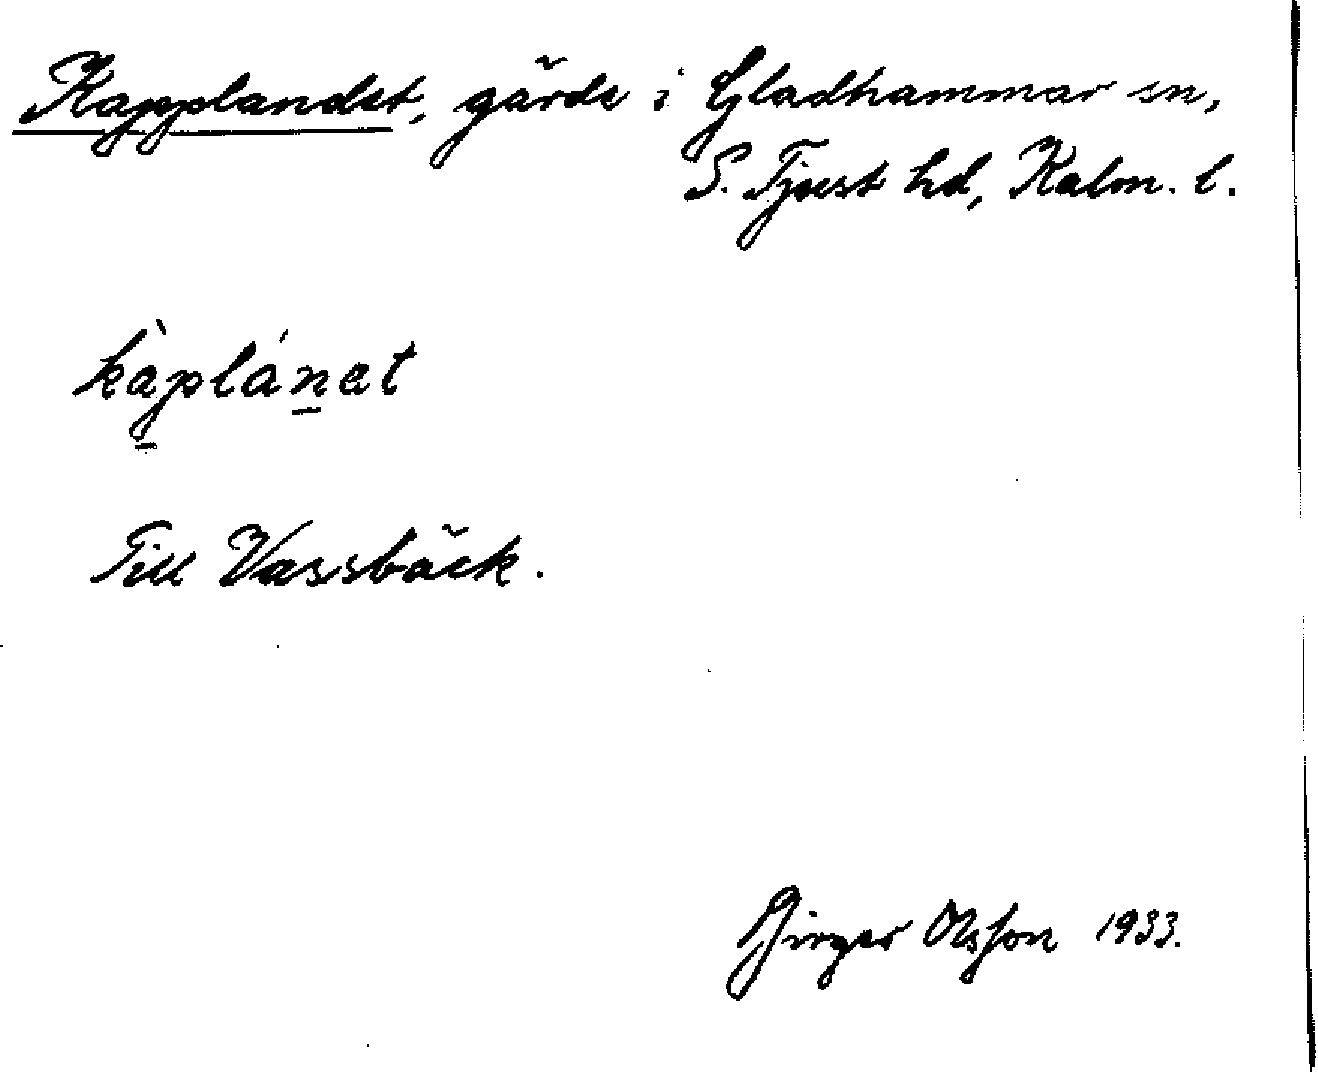 Kapplandet, gärde i Gladhammar sn,
S. Tjust hd, Kalm. l.
kàp̲lán̲et
Till Vassbäck.
Birger Olsson 1933.